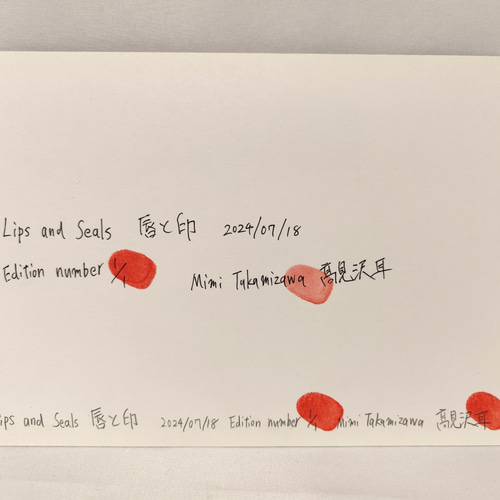 Lips and Seals 唇と印 2024/07/18
Edition number 1/1
Mimi Takamizawa 高見沢耳
ips and Seals 唇と印 2024/07/18 Edition number 1/1 Mimi Takamizawa 高見沢耳